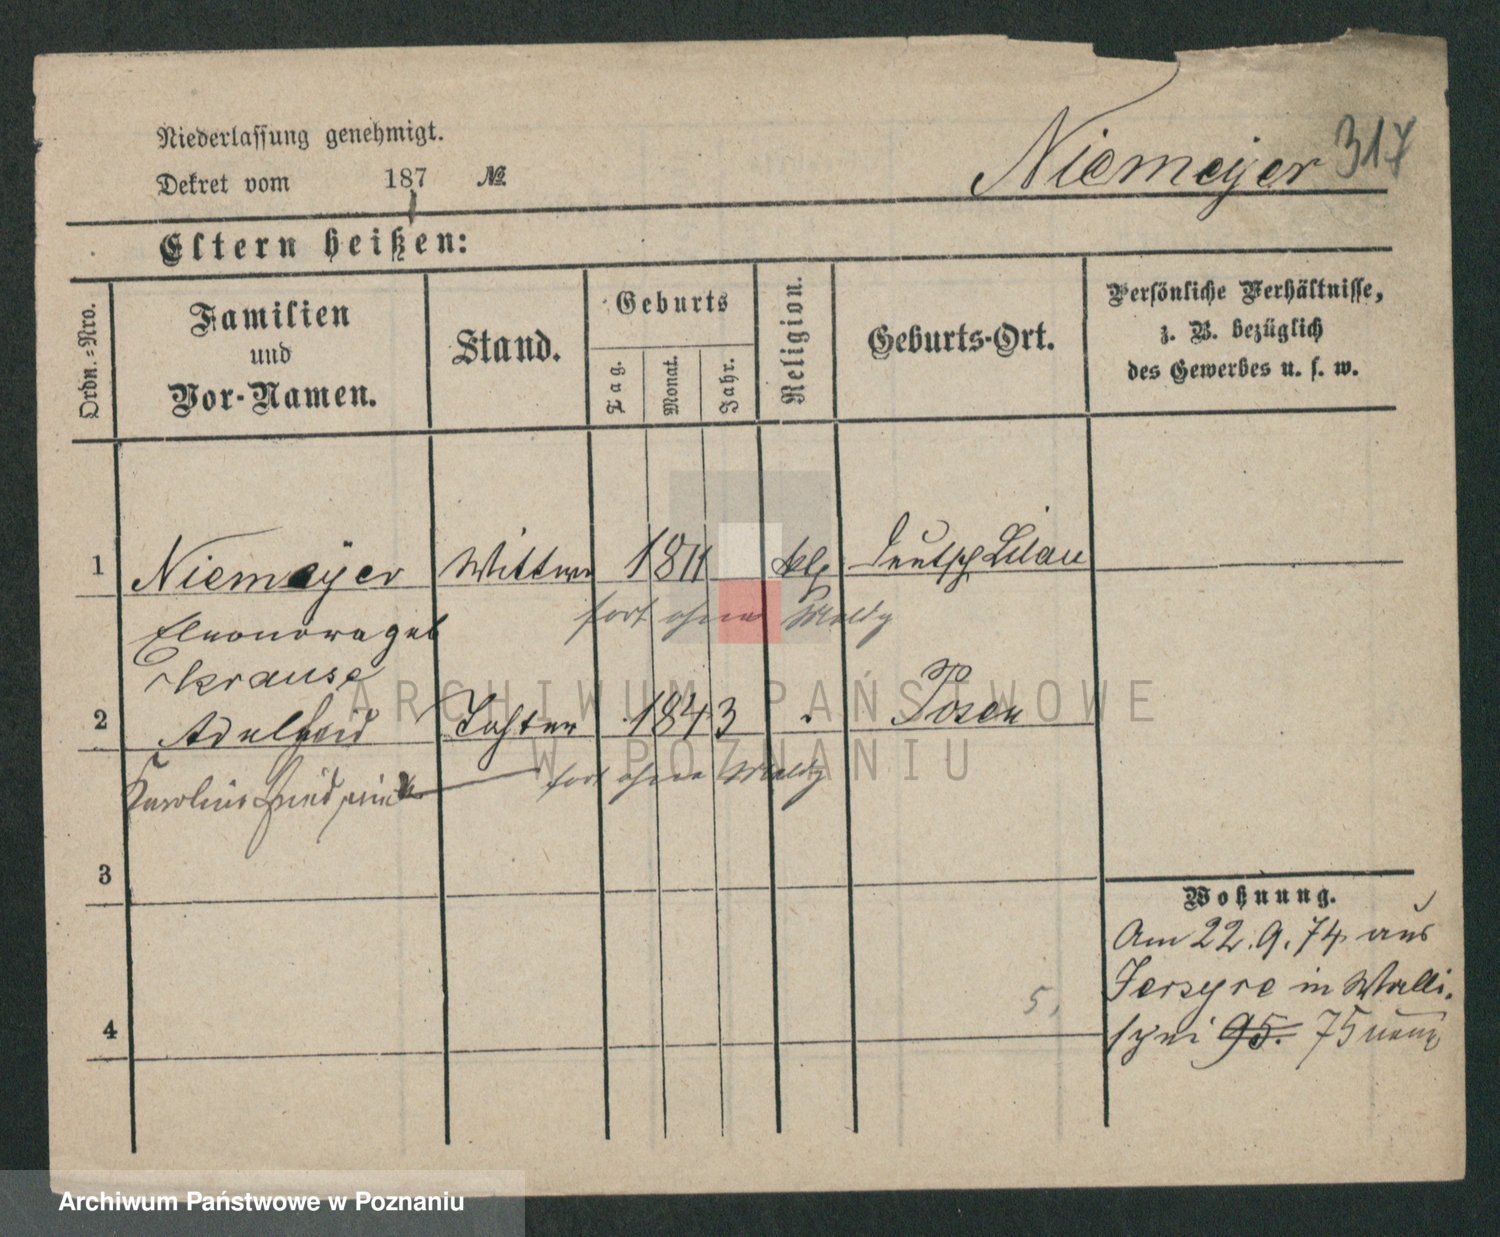 Niederlassung genehmigt.
Dekret vom 187 №
Niemeyer 317
Eltern heißen:
Ordn.-Nro.
Familien
und
Vor-Namen.
Stand.
Geburts
Tag.
Monat.
Jahr.
Religion.
Geburts-Ort.
Persönliche Verhältnisse,
z. B. bezüglich
des Gewerbes u. s. w.
1 Niemeÿer Wittwe 1811 Deutsch Lilau
fort ohne Meldg
Eleonora geb
Krause
2 Adelheid Tochter 1843 Posen
Karoline fort ohne Meldg
3
Wohnung.
Am 22.9.74 aus
Jersyce in Walli-
schei 95. 75
4
5,
ARCHIWUM PAŃSTWOWE
W POZNANIU
Archiwum Państwowe w Poznaniu